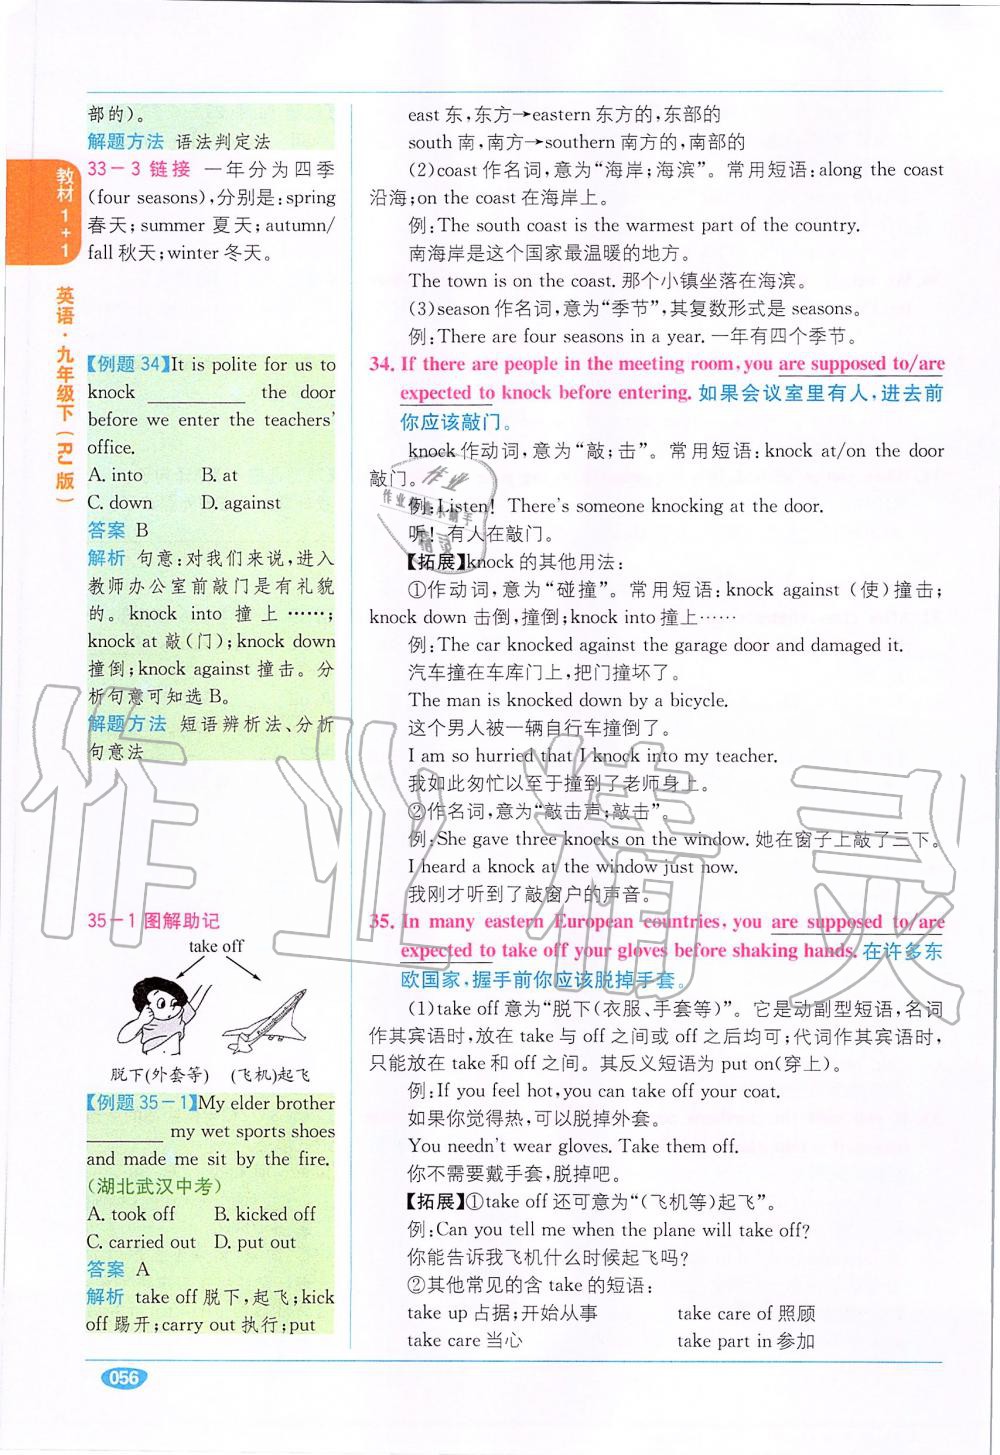 部的)。
解题方法 语法判定法
33-3 链接 一年分为四季
(four seasons),分别是:spring
春天;summer 夏天;autumn/
fall 秋天;winter 冬天。
教材1+1
英语·九年级下(RJ版)
【例题34】It is polite for us to
knock __________ the door
before we enter the teachers'
office.
A. into B. at
C. down D. against
答案 B
解析 句意:对我们来说,进入
教师办公室前敲门是有礼貌
的。knock into 撞上……;
knock at 敲(门);knock down
撞倒;knock against 撞击。分
析句意可知选B。
解题方法 短语辨析法、分析
句意法
35-1 图解助记
take off
脱下(外套等) (飞机)起飞
【例题35-1】My elder brother
________ my wet sports shoes
and made me sit by the fire.
(湖北武汉中考)
A. took off B. kicked off
C. carried out D. put out
答案 A
解析 take off 脱下,起飞;kick
off 踢开;carry out 执行;put
east 东,东方→eastern 东方的,东部的
south 南,南方→southern 南方的,南部的
(2)coast 作名词,意为“海岸;海滨”。常用短语:along the coast
沿海;on the coast 在海岸上。
例:The south coast is the warmest part of the country.
南海岸是这个国家最温暖的地方。
The town is on the coast. 那个小镇坐落在海滨。
(3)season 作名词,意为“季节”,其复数形式是 seasons。
例:There are four seasons in a year. 一年有四个季节。
34. If there are people in the meeting room, you are supposed to/are
expected to knock before entering. 如果会议室里有人,进去前
你应该敲门。
knock 作动词,意为“敲;击”。常用短语:knock at/on the door
敲门。
例:Listen! There's someone knocking at the door.
听!有人在敲门。
【拓展】knock 的其他用法:
①作动词,意为“碰撞”。常用短语:knock against (使)撞击;
knock down 击倒,撞倒;knock into 撞上……
例:The car knocked against the garage door and damaged it.
汽车撞在车库门上,把门撞坏了。
The man is knocked down by a bicycle.
这个男人被一辆自行车撞倒了。
I am so hurried that I knock into my teacher.
我如此匆忙以至于撞到了老师身上。
②作名词,意为“敲击声;敲击”。
例:She gave three knocks on the window. 她在窗子上敲了三下。
I heard a knock at the window just now.
我刚才听到了敲窗户的声音。
35. In many eastern European countries, you are supposed to/are
expected to take off your gloves before shaking hands. 在许多东
欧国家,握手前你应该脱掉手套。
(1)take off 意为“脱下(衣服、手套等)”。它是动副型短语,名词
作其宾语时,放在 take 与 off 之间或 off 之后均可;代词作其宾语时,
只能放在 take 和 off 之间。其反义短语为 put on(穿上)。
例:If you feel hot, you can take off your coat.
如果你觉得热,可以脱掉外套。
You needn't wear gloves. Take them off.
你不需要戴手套,脱掉吧。
【拓展】①take off 还可意为“(飞机等)起飞”。
例:Can you tell me when the plane will take off?
你能告诉我飞机什么时候起飞吗?
②其他常见的含 take 的短语:
take up 占据;开始从事 take care of 照顾
take care 当心 take part in 参加
056
作业精灵